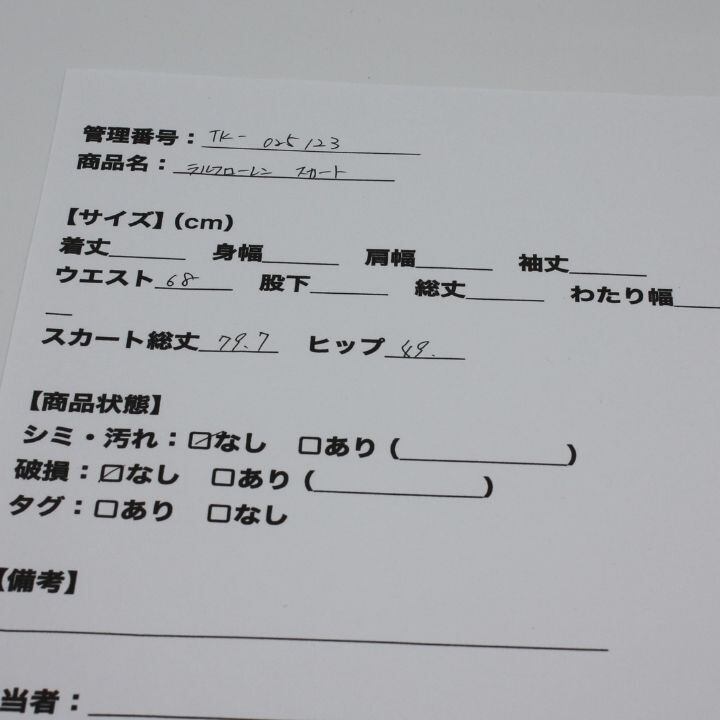 管理番号：TK- 025123
商品名：ラルフローレン スカート
【サイズ】(cm)
着丈______ 身幅______ 肩幅______ 袖丈______
ウエスト 68 股下______ 総丈______ わたり幅____
__
スカート総丈 79.7 ヒップ 49.
【商品状態】
シミ・汚れ：☑なし □あり (_____________)
破損：☑なし □あり (_____________)
タグ：□あり □なし
【備考】
当者：